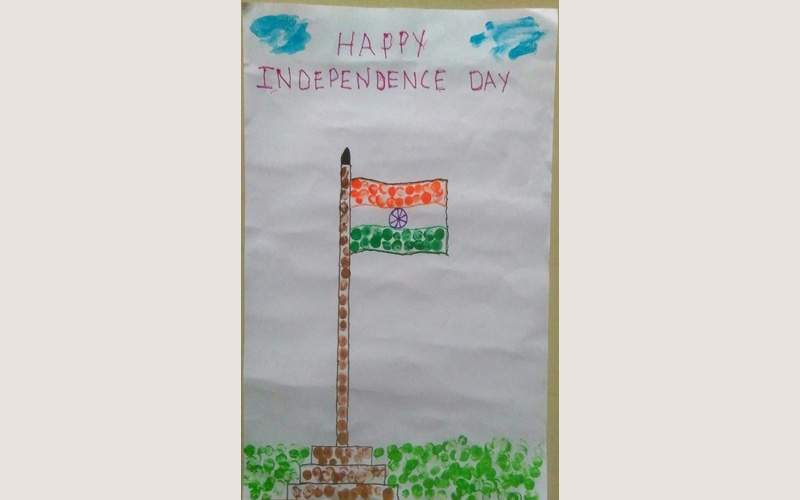 HAPPY
INDEPENDENCE DAY